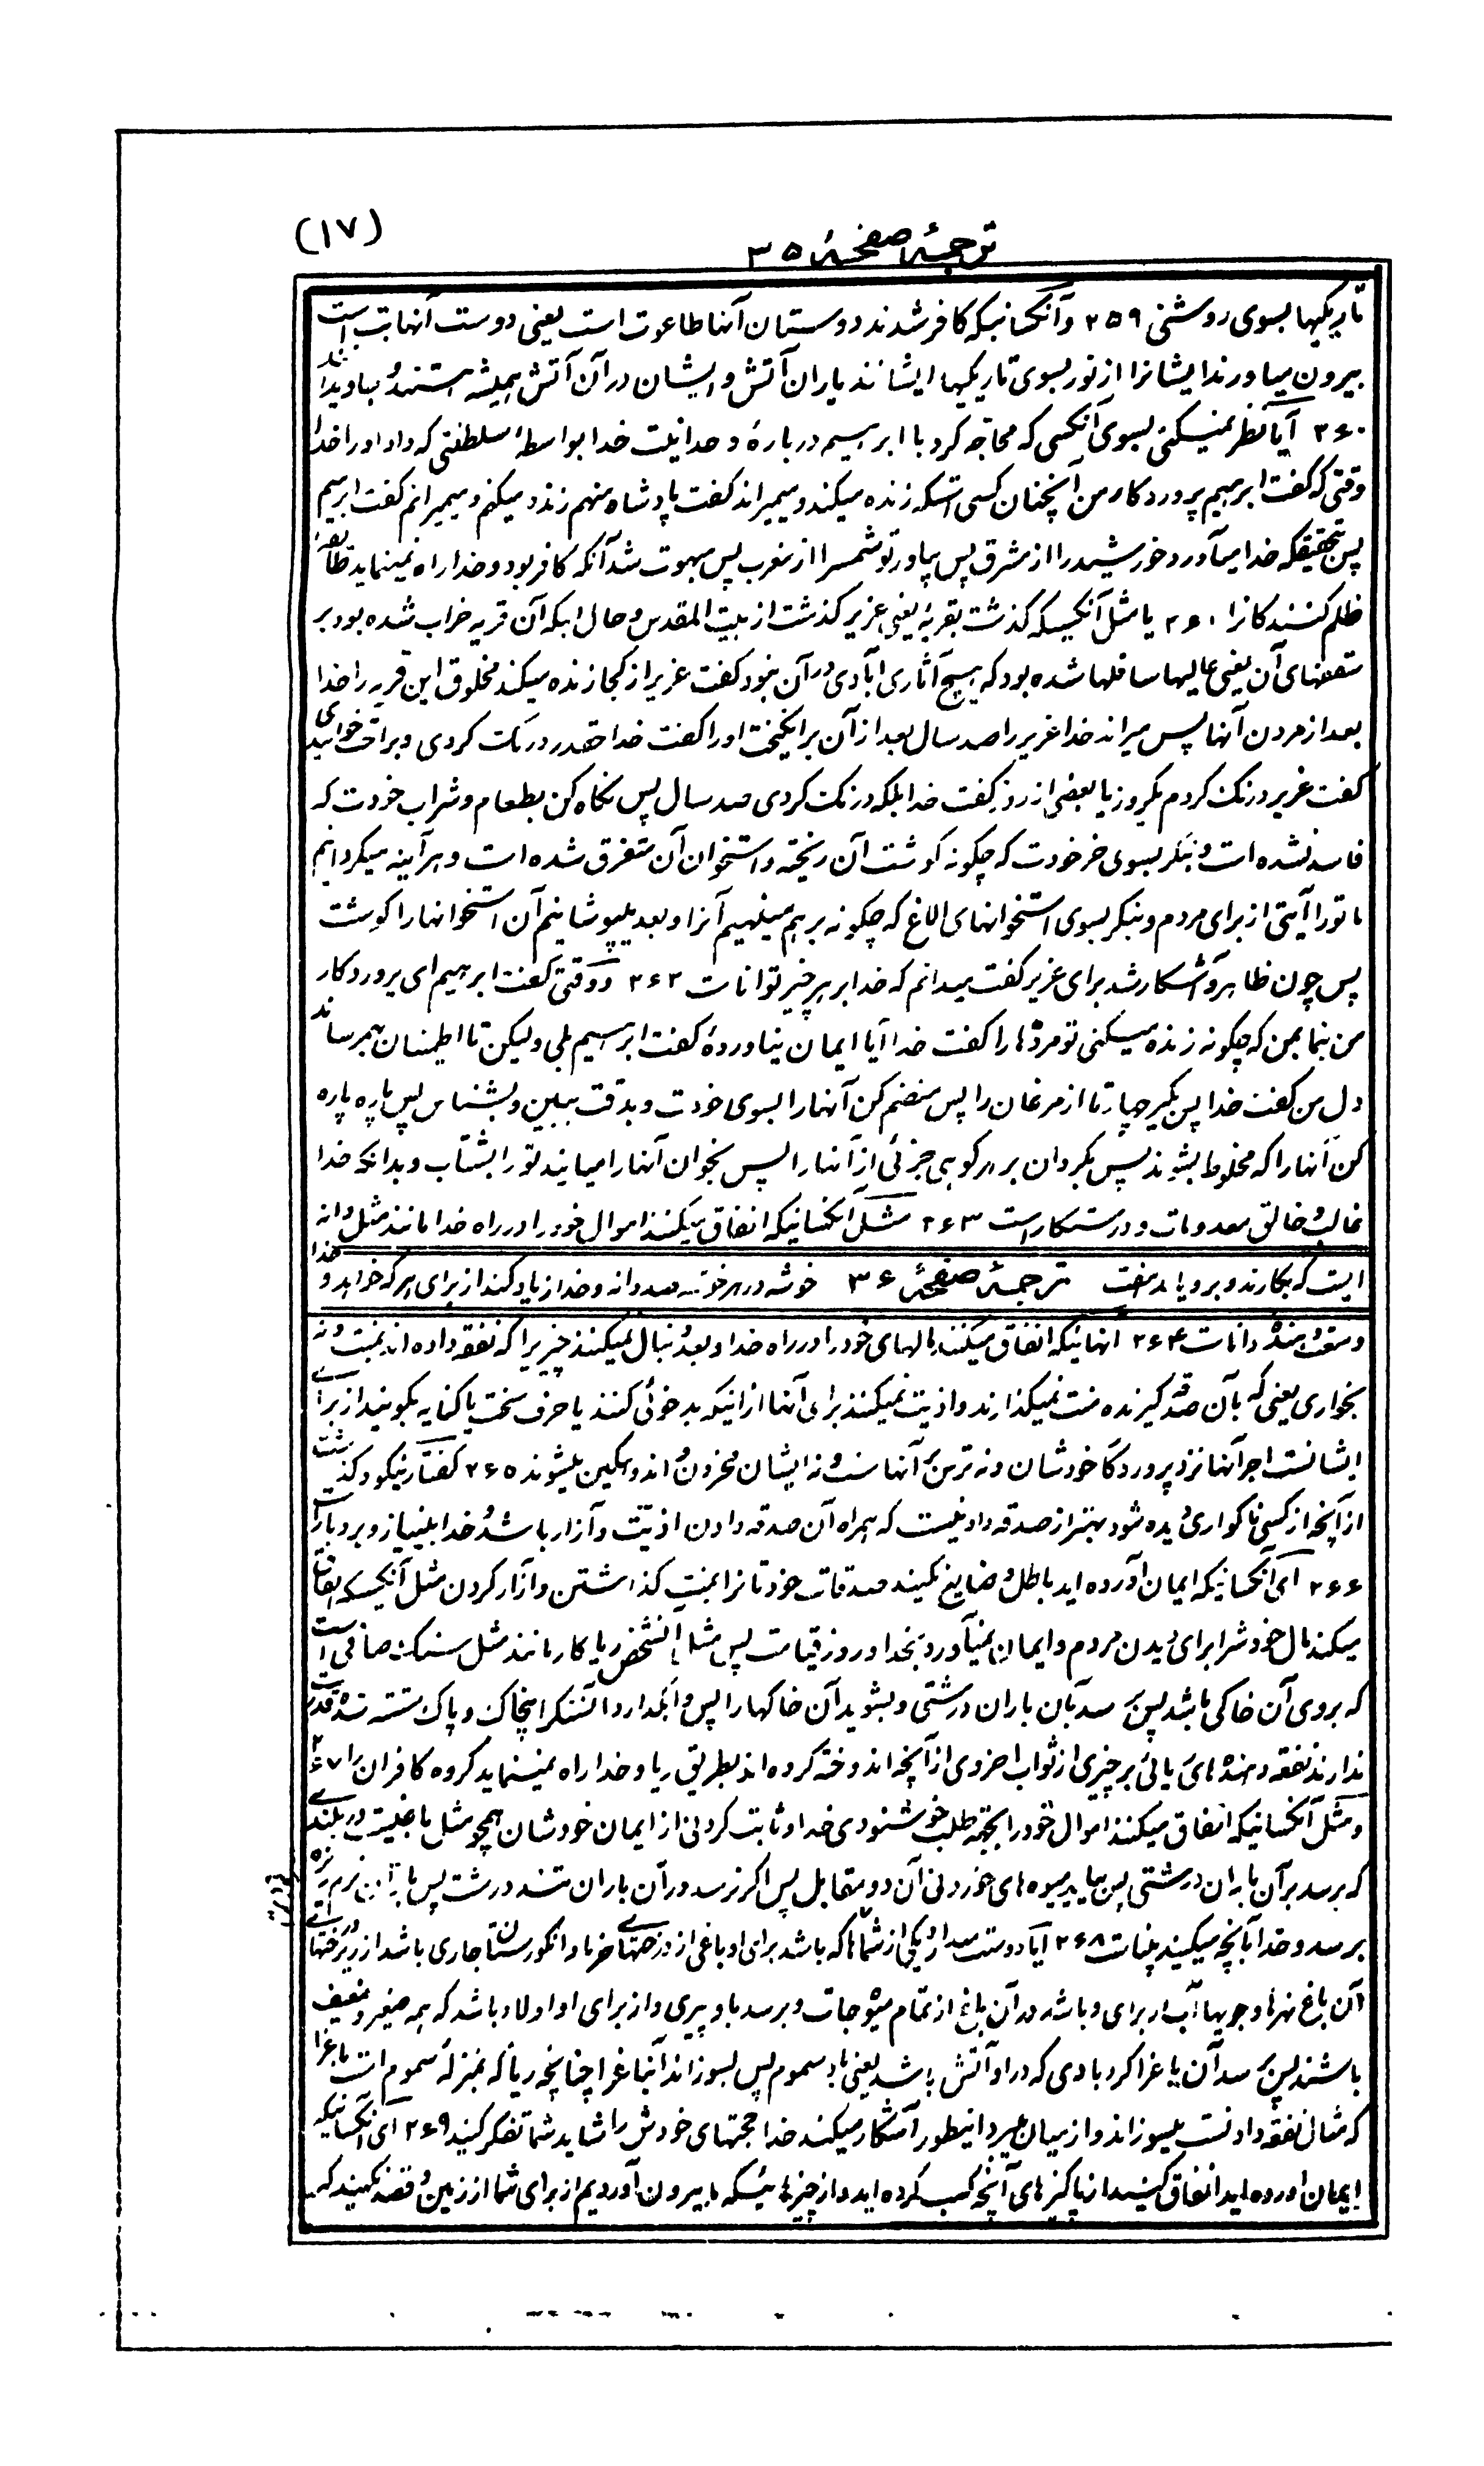 (۱۷)
ترجمهٔ صفحهٔ ۳۵
تاریکیها بسوی روشنی ۲۵۹ وآنکسانیکه کافر شدند دوستان آنها طاغوت است یعنی دوست آنها بت است
بیرون میاورند ایشانرا از نور بسوی تاریکیها ایشانند یاران آتش و ایشان در آن آتش همیشه هستند و
۲۶۰ آیا نظر نمیکنی بسوی آنکسی که محاجه کرد با ابرهیم در بارهٔ وحدانیت خدا بواسطهٔ سلطنتی که داد او را خدا
وقتی که گفت ابرهیم پروردکار من آنچنان کسی استکه زنده میکند و میمیراند گفت پادشاه منهم زنده میکنم و میمیرانم گفت ابرهیم
پس بتحقیقکه خدا میآورد خورشید را از مشرق پس بیاور تو شمسرا از مغرب پس مبهوت شد آنکه کافر بود و خدا راه نمینماید طائفه
ظلم کنندکانرا ۲۶۱ یا مثل آنکسیکه کذشت بقریهٔ یعنی عزیر کذشت از بیت المقدس و حال اینکه آن قریه خراب شده بود بر
سقفهای آن یعنی عالیها سافلها شده بود که هیچ آثاری آبادی در آن نبود گفت عزیر از کجا زنده میکند مخلوق این قریه را خدا
بعد از مردن آنها پس میراند خدا عزیر را صد سال بعد از آن برانکیخت او را گفت خدا چقدر درنک کردی و براحت خوابیدی
گفت عزیر درنک کردم یکروز یا بعضی از روز گفت خدا بلکه درنک کردی صد سال پس نکاه کن بطعام و شراب خودت که
فاسد نشده است و بنکر بسوی خر خودت که چکونه کوشت آن ریخته و استخوان آن متفرق شده است و هر آینه میکردانیم
ما تو را آیتی از برای مردم و بنکر بسوی استخوانهای الاغ که چکونه بر هم مینهیم آنرا و بعد میپوشانیم آن استخوانها را کوشت
پس چون ظاهر و آشکار شد برای عزیر گفت میدانم که خدا بر هر چیز توانا است ۲۶۲ و وقتی گفت ابرهیم ای پروردکار
من بنما بمن که چکونه زنده میکنی تو مردها را گفت خدا آیا ایمان نیاوردهٔ گفت ابرهیم بلی ولیکن تا اطمینان بهمرساند
دل من گفت خدا پس بکیر چهار تا از مرغان را پس منضم کن آنها را بسوی خودت و بدقت ببین و بشناس پس پاره پاره
کن آنها را که مخلوط بشوند پس بکردان بر هر کوهی جزئی از آنها را پس بخوان آنها را میایند تو را بشتاب و بدانکه خدا
غالب و خالق معدومات و درستکار است ۲۶۳ مثل آنکسانیکه انفاق میکنند اموال خود را در راه خدا مانند مثل دانه
ایست که بکارند و برویاند هفت ترجمهٔ صفحهٔ ۳۶ خوشه در هر خوشه صد دانه و خدا زیاد کند از برای هر که خواهد و خدا
وسعت دهنده دانا است ۲۶۴ آنهائیکه انفاق میکنند مالهای خود را در راه خدا و بعد دنبال نمیکنند چیزیرا که نفقه داده اند بمنت و نه
بخواری یعنی که بآن صدقه کیرنده منت نمیکذارند و اذیت نمیکنند برای آنها از اینکه بدخوئی کنند یا حرف سخت یا کنایه بکویند از برای
ایشانست اجر آنها نزد پروردکار خودشان و نه ترس بر آنها است و نه ایشان محزون و اندوهکین میشوند ۲۶۵ کفتار نیکو و کذشت
از آنچه از کسی ناکواری دیده شود بهتر از صدقه دادنیست که همراه آن صدقه دادن اذیت و آزار باشد و خدا بینیاز و بردبار است
۲۶۶ ای آنکسانیکه ایمان آورده اید باطل و ضایع نکنید صدقات خودتانرا بمنت کذاشتن و آزار کردن مثل آنکسیکه انفاق
میکند مال خودشرا برای دیدن مردم و ایمان نمیآورد بخدا و روز قیامت پس مثل انشخص ریاکار مانند مثل سنک صافی است
که بروی آن خاکی باشد پس برسد بآن باران درشتی و بشوید آن خاکها را پس وابکذارد آنسنکرا خاک و پاک شسته شده قدرت
ندارند نفقه دهندهای ریائی بر چیزی از ثواب اخروی از آنچه اندوخته کرده اند بطریق ریا و خدا راه نمینماید کروه کافران را ۲۶۷
و مثل آنکسانیکه انفاق میکنند اموال خود را بجهة طلب خوشنودی خدا و ثابت کردنی از ایمان خودشان همچو مثل باغیست در بلندی
که برسد بر آن باران درشتی پس بیاید میوه های خوردنی آن دو مقابل پس اکر نرسد در آن باران تند درشت پس باران نرم ریزه
برسد و خدا بآنچه میکنید بینا است ۲۶۸ آیا دوست میدارد یکی از شماها که باشد برای او باغی از درختهای خرما و انکورستان جاری باشد از زیر درختهای
آن باغ نهرها و جویها آب از برای و باشد در آن باغ از تمام میوجات و برسد باو پیری و از برای او اولاد باشد که همه صغیر و ضعیف
باشند پس برسد آن باغرا کردبادی که در او آتش باشد یعنی باد سموم پس بسوزاند آنباغرا چنانچه ریا که بمنزلهٔ سموم است باغرا
که مثال نفقه دادنست میسوزاند و از میان میبرد اینطور آشکار میکند خدا حجتهای خودش را شاید شما تفکر کنید ۲۶۹ ای آنکسانیکه
ایمان آورده اید انفاق کنید از پاکیزهای آنچه کسب کرده اید و از چیزهائیکه ما بیرون آوردیم از برای شما از زمین و قصد نکنید که